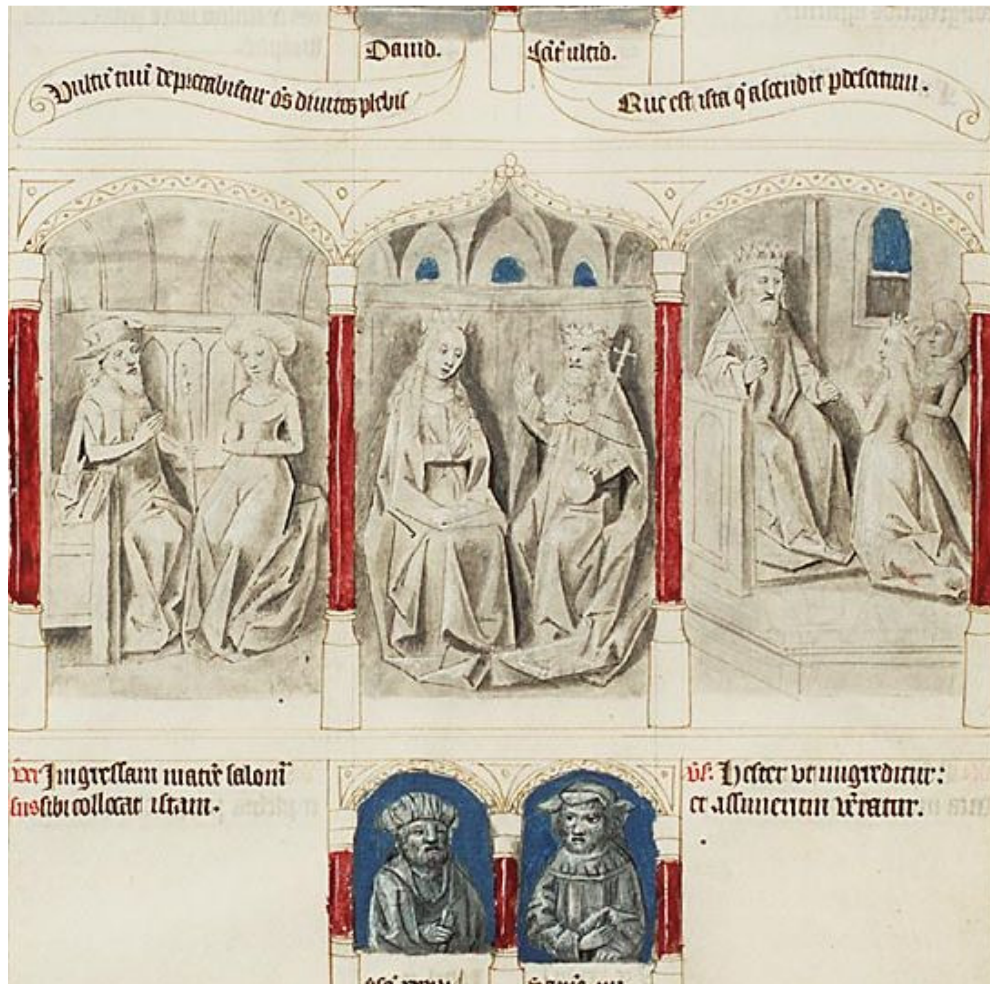 Dauid.
Vultū tuū deprecabuntur oēs diuites plebis
Que est ista q ascendit p desertum.
v̄r Ingressam matrē salomī
sus sibi collocat istam.
v̄s: Hester ut ingreditur:
et assuerum veratur.